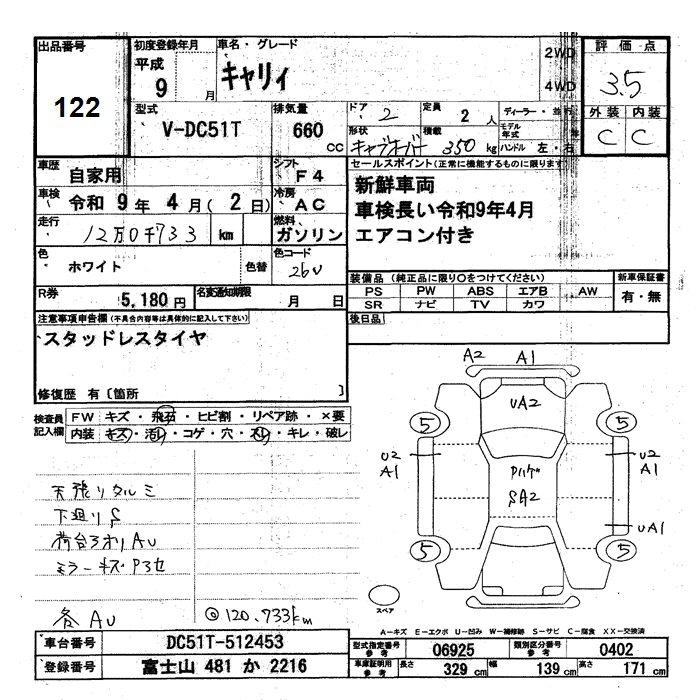 出品番号
122
初度登録年月
平成
9 月
車名・グレード
キャリィ
2WD
4WD
評価点
3.5
外装 内装
C C
型式
V-DC51T
排気量
660
CC
ドア
2
定員
2 人
形状
積載
350 kg
ディーラー・並行
モデル年式
ハンドル 左・右
車歴
自家用
シフト
F4
車検
令和 9年 4月(2日)
冷房
AC
走行
12万0千733 km
燃料
ガソリン
色
ホワイト
色替
色コード
26U
R券
5,180円
名変通知期限
月 日
セールスポイント(正常に機能するものに限ります)
新鮮車両
車検長い令和9年4月
エアコン付き
装備品(純正品に限り○をつけてください)
PS PW ABS エアB AW
SR ナビ TV カワ
新車保証書
有・無
後日品
注意事項申告欄(不具合内容等は具体的に記入して下さい)
スタッドレスタイヤ
修復歴 有〔箇所 〕
検査員
記入欄
FW キズ・飛石・ヒビ割・リペア跡・×要
内装 キズ・汚れ・コゲ・穴・スレ・キレ・破レ
A2 A1
UA2
5 5
U2
A1
U2
A1
SA2
UA1
5 5
天張りタルミ
下廻りS
荷台アオリAU
ミラーキズ
各AU
◎120.733km
スペア
A-キズ E-エクボ U-凹み W-補修跡 S-サビ C-腐食 XX-交換済
車台番号
DC51T-512453
登録番号
富士山 481 か 2216
型式指定番号
参考
06925
類別区分番号
参考
0402
車庫証明用
参考
長さ
329 cm
幅
139 cm
高さ
171 cm